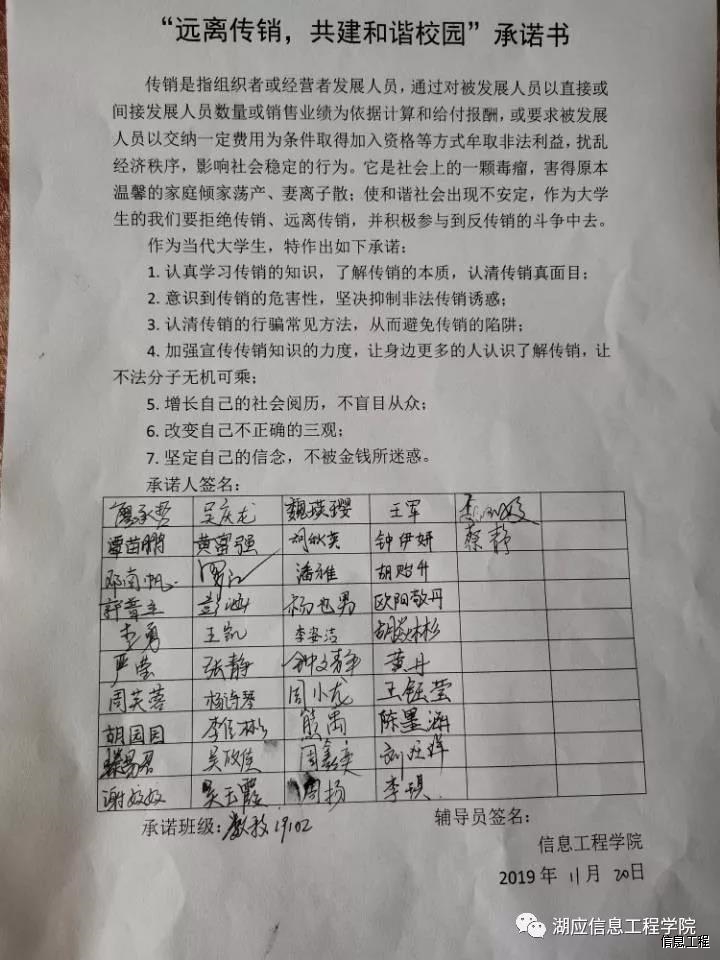 “远离传销，共建和谐校园”承诺书
传销是指组织者或经营者发展人员，通过对被发展人员以直接或
间接发展人员数量或销售业绩为依据计算和给付报酬，或要求被发展
人员以交纳一定费用为条件取得加入资格等方式牟取非法利益，扰乱
经济秩序，影响社会稳定的行为。它是社会上的一颗毒瘤，害得原本
温馨的家庭倾家荡产、妻离子散；使和谐社会出现不安定，作为大学
生的我们要拒绝传销、远离传销，并积极参与到反传销的斗争中去。
作为当代大学生，特作出如下承诺：
1. 认真学习传销的知识，了解传销的本质，认清传销真面目；
2. 意识到传销的危害性，坚决抑制非法传销诱惑；
3. 认清传销的行骗常见方法，从而避免传销的陷阱；
4. 加强宣传传销知识的力度，让身边更多的人认识了解传销，让
不法分子无机可乘；
5. 增长自己的社会阅历，不盲目从众；
6. 改变自己不正确的三观；
7. 坚定自己的信念，不被金钱所迷惑。
承诺人签名：
吴庆龙 魏瑛璎 王军
谭苗鹏 黄富强 钟伊妍 蔡静
邓南帆 罗江 潘雅 胡贻升
彭波 杨艳男 欧阳敬丹
李勇 王凯 李姿洁
严莹 张静 钟文静 黄丹
周芙蓉 杨诗琴 周小龙 王钰莹
胡园园 熊禹 陈墨涵
吴政佳 周鑫奕
谢姣姣 吴玉霞 周扬 李琪
承诺班级：数技19102 辅导员签名：
信息工程学院
2019 年 11月 20日
湖应信息工程学院
信息工程